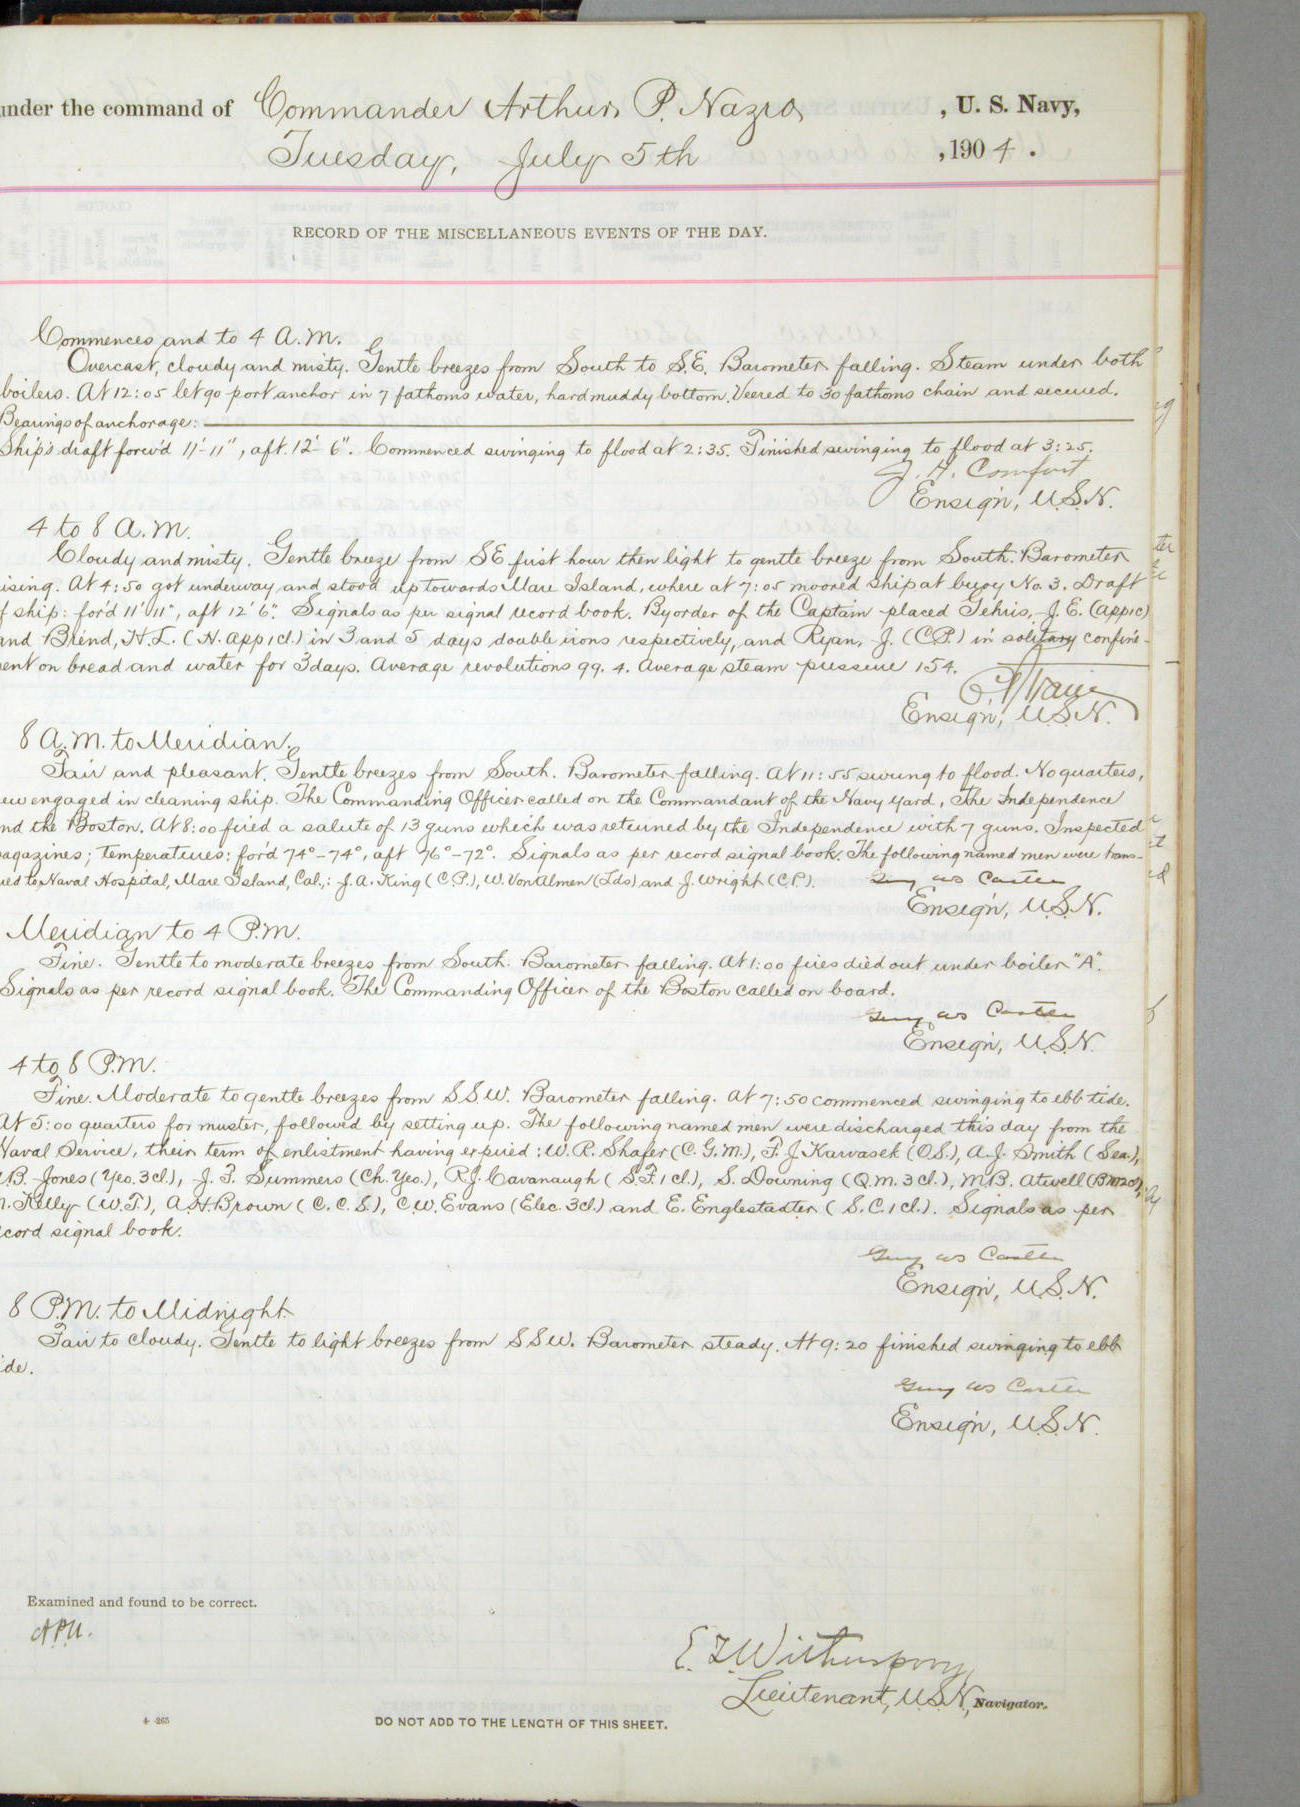 under the command of Commander Arthur P. Nazro, U. S. Navy,
Tuesday, July 5th, 1904.
RECORD OF THE MISCELLANEOUS EVENTS OF THE DAY.
Commences and to 4 A.M.
Overcast, cloudy and misty. Gentle breezes from South to S.E. Barometer falling. Steam under both
boilers. At 12:05 let go port anchor in 7 fathoms water, hard muddy bottom. Veered to 30 fathoms chain and secured.
Bearings of anchorage:
Ship's draft forw'd 11'-11", aft. 12'-6". Commenced swinging to flood at 2:35. Finished swinging to flood at 3:25.
J. H. Comfort
Ensign, U.S.N.
4 to 8 A.M.
Cloudy and misty. Gentle breeze from SE first hour then light to gentle breeze from South. Barometer
ising. At 4:50 got underway and stood up towards Mare Island, where at 7:05 moored ship at buoy No. 3. Draft
f ship: for'd 11' 11", aft 12' 6". Signals as per signal record book. By order of the Captain placed Tehris, J. E. (App 1c)
and Brend, H.L. (H. App 1 cl.) in 3 and 5 days double irons respectively, and Ryan, J. (C.P.) in solitary confine-
ent on bread and water for 3 days. Average revolutions 99.4. Average steam pressure 154.
Ensign, U.S.N.
8 A.M. to Meridian.
Fair and pleasant. Gentle breezes from South. Barometer falling. At 11:55 swung to flood. No quarters,
ew engaged in cleaning ship. The Commanding Officer called on the Commandant of the Navy Yard, The Independence
nd the Boston. At 8:00 fired a salute of 13 guns which was returned by the Independence with 7 guns. Inspected
agazines; temperatures: for'd 74°-74°, aft 76°-72°. Signals as per record signal book. The following named men were trans-
red to Naval Hospital, Mare Island, Cal.,: J.A. King (C.P.), W. VonAlmen (Lds) and J. Wright (C.P.).
Guy W S Castle
Ensign, U.S.N.
Meridian to 4 P.M.
Fine. Gentle to moderate breezes from South. Barometer falling. At 1:00 fires died out under boiler "A".
Signals as per record signal book. The Commanding Officer of the Boston called on board.
Guy W S Castle
Ensign, U.S.N.
4 to 8 P.M.
Fine. Moderate to gentle breezes from S.S.W. Barometer falling. At 7:50 commenced swinging to ebb tide.
At 5:00 quarters for muster, followed by setting up. The following named men were discharged this day from the
Naval Service, their term of enlistment having expired: W.R. Shafer (C.G.M.), F. J Karvasek (O.S.), A.J. Smith (Sea.),
.B. Jones (Yeo. 3 cl.), J. F. Summers (Ch. Yeo.), R.J. Cavanaugh (S.F. 1 cl.), S. Downing (Q.M. 3 cl.), M.B. Atwell (BM2cl),
. Kelly (W.T.), A.H. Brown (C.C.S.), C.W. Evans (Elec. 3cl.) and E. Englestadter (S.C. 1 cl.). Signals as per
ecord signal book.
Guy W S Castle
Ensign, U.S.N.
8 P.M. to Midnight
Fair to cloudy. Gentle to light breezes from SSW. Barometer steady. At 9:20 finished swinging to ebb
ide.
Guy W S Castle
Ensign, U.S.N.
Examined and found to be correct.
A.P.N.
E. F. Witherspoon
Lieutenant, U.S.N., Navigator.
4-265
DO NOT ADD TO THE LENGTH OF THIS SHEET.